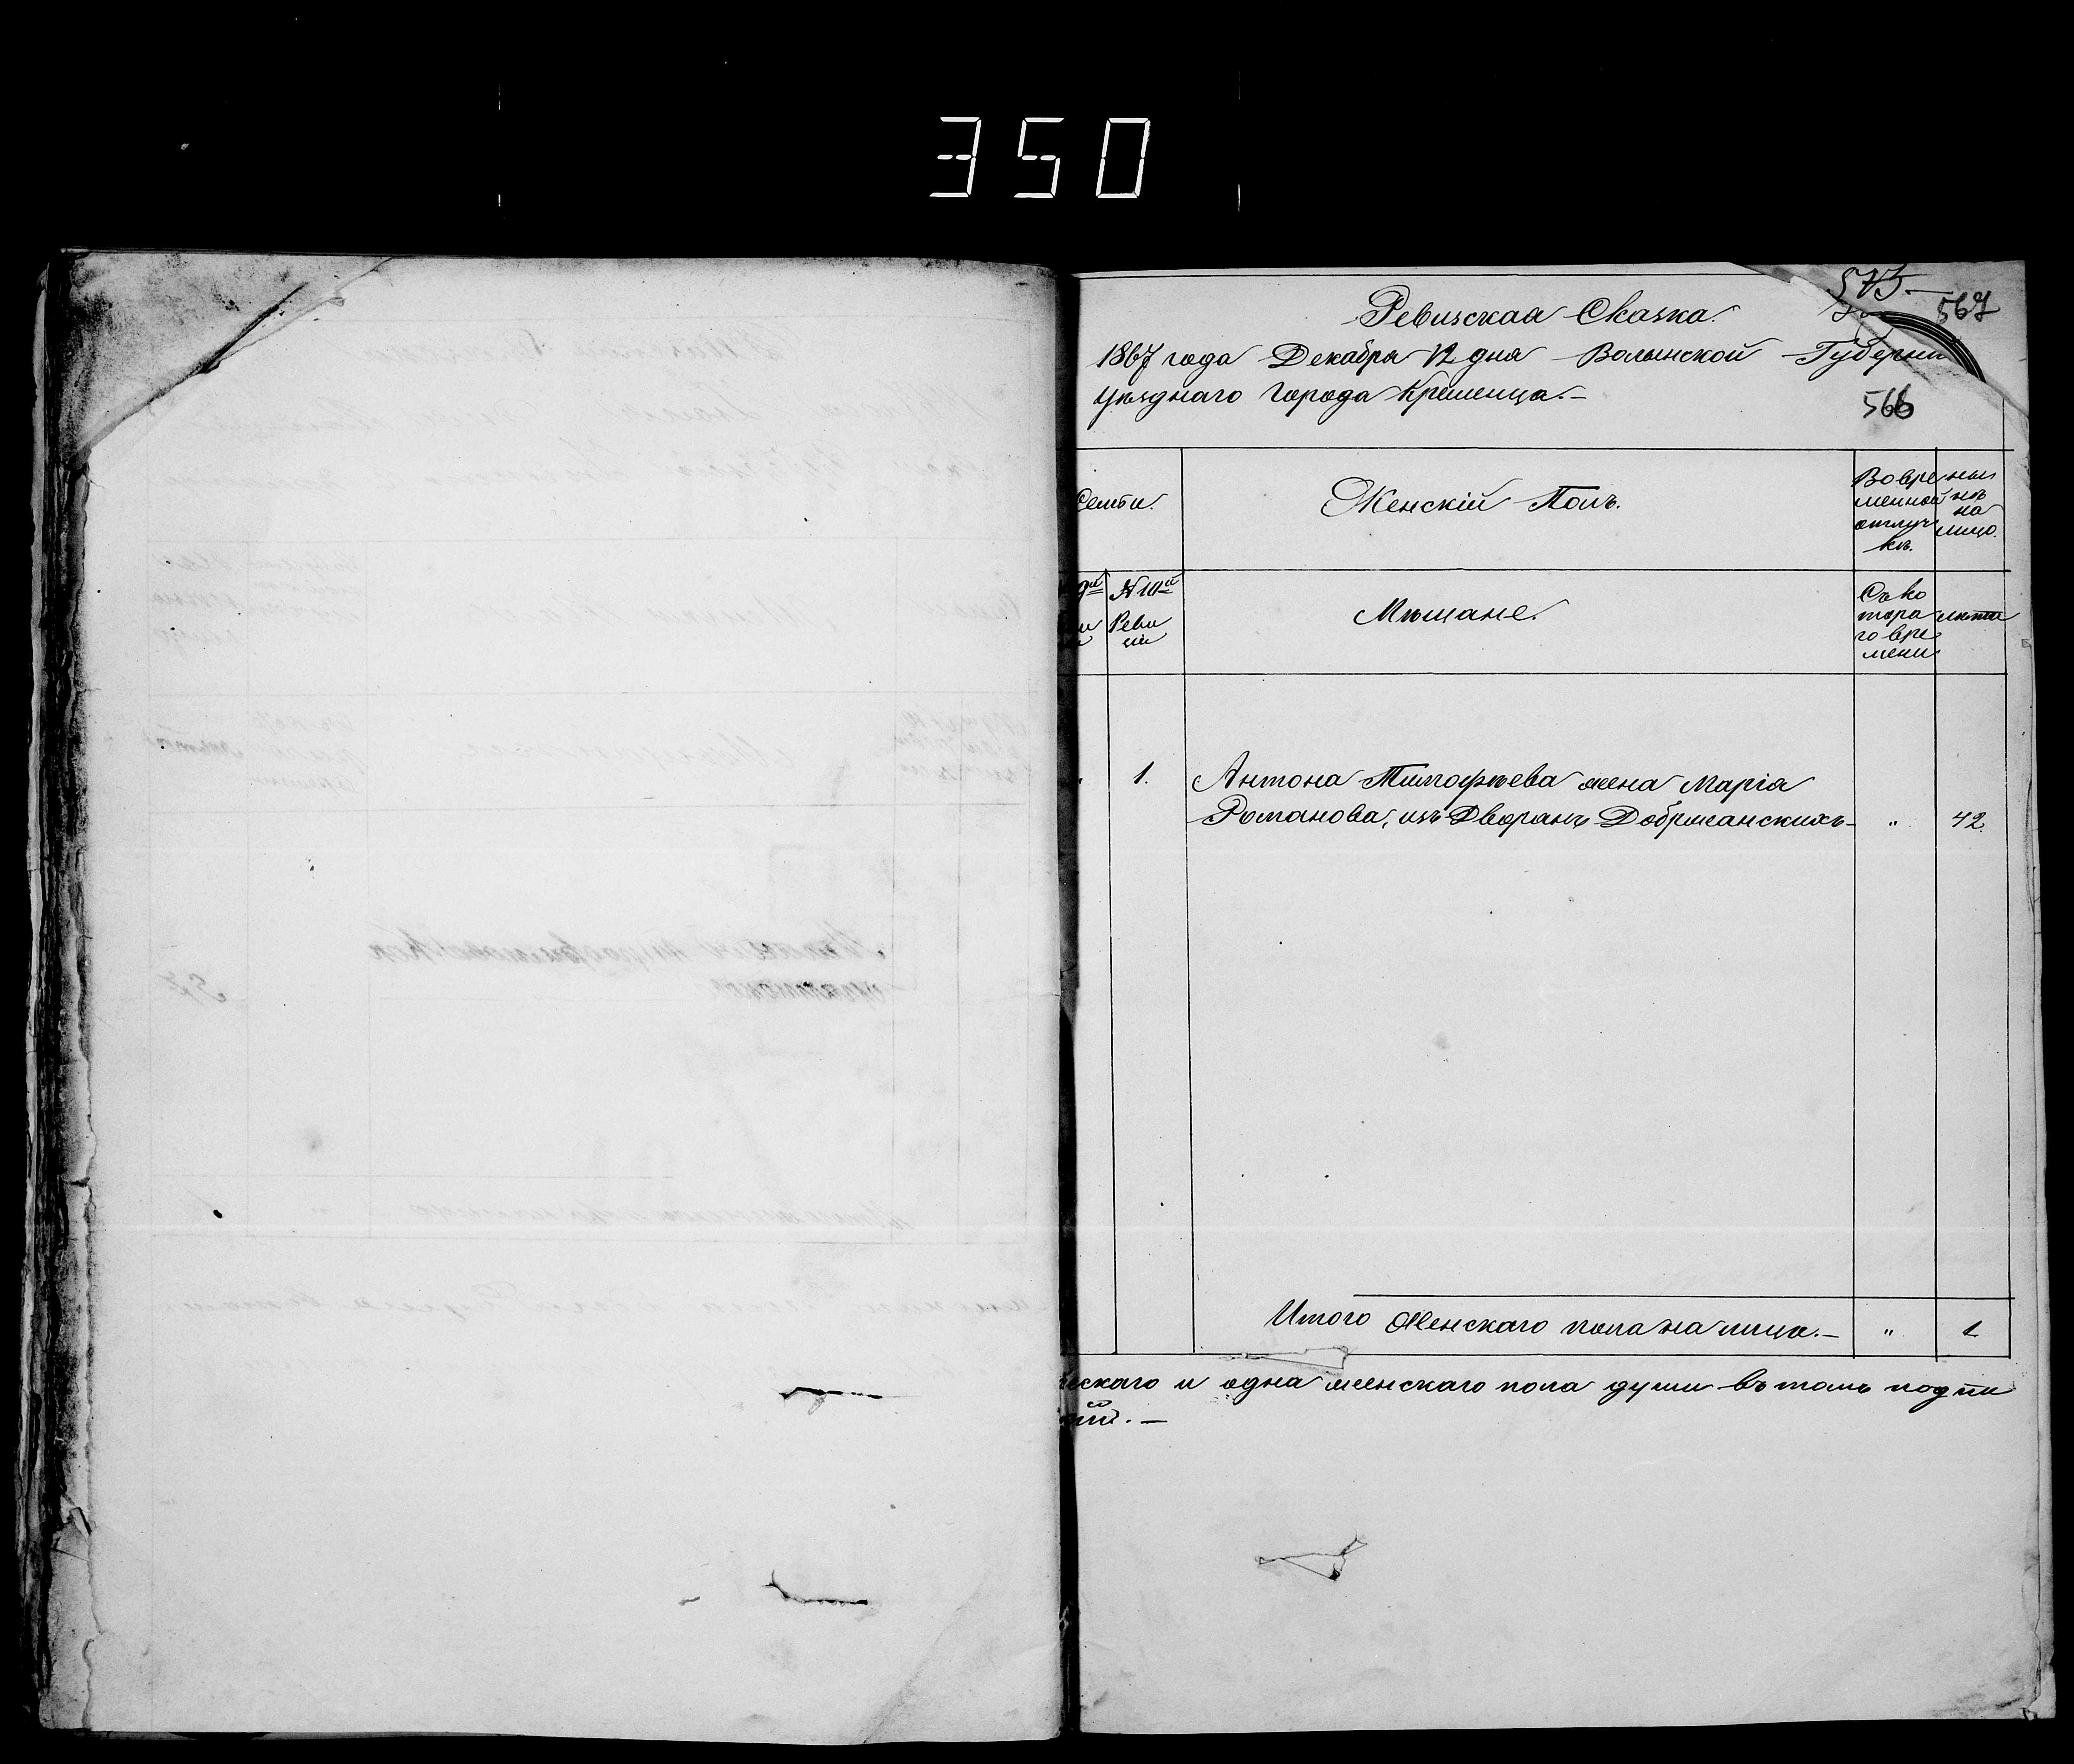 350
573.—
567
Ревизская Сказка.
1867 года Декабря 12 дня Волынской Губерніи
уѣзднаго города Кременца.—
566
Семьи.
Женскій Полъ.
Во вре
менной
отлуч
кѣ.
нын
нѣ
на
лицо.
9й
№ 10й
Реви
зіи
Мѣщане.
Съ ко
тора
го вре
мени
лѣта
1.
Антона Тимофѣева жена Марія
Романова, изъ Дворянъ Добржанскихъ—
"
42.
Итого женскаго пола на лицо.—
"
1
ескаго и одна женскаго пола души въ томъ подпи